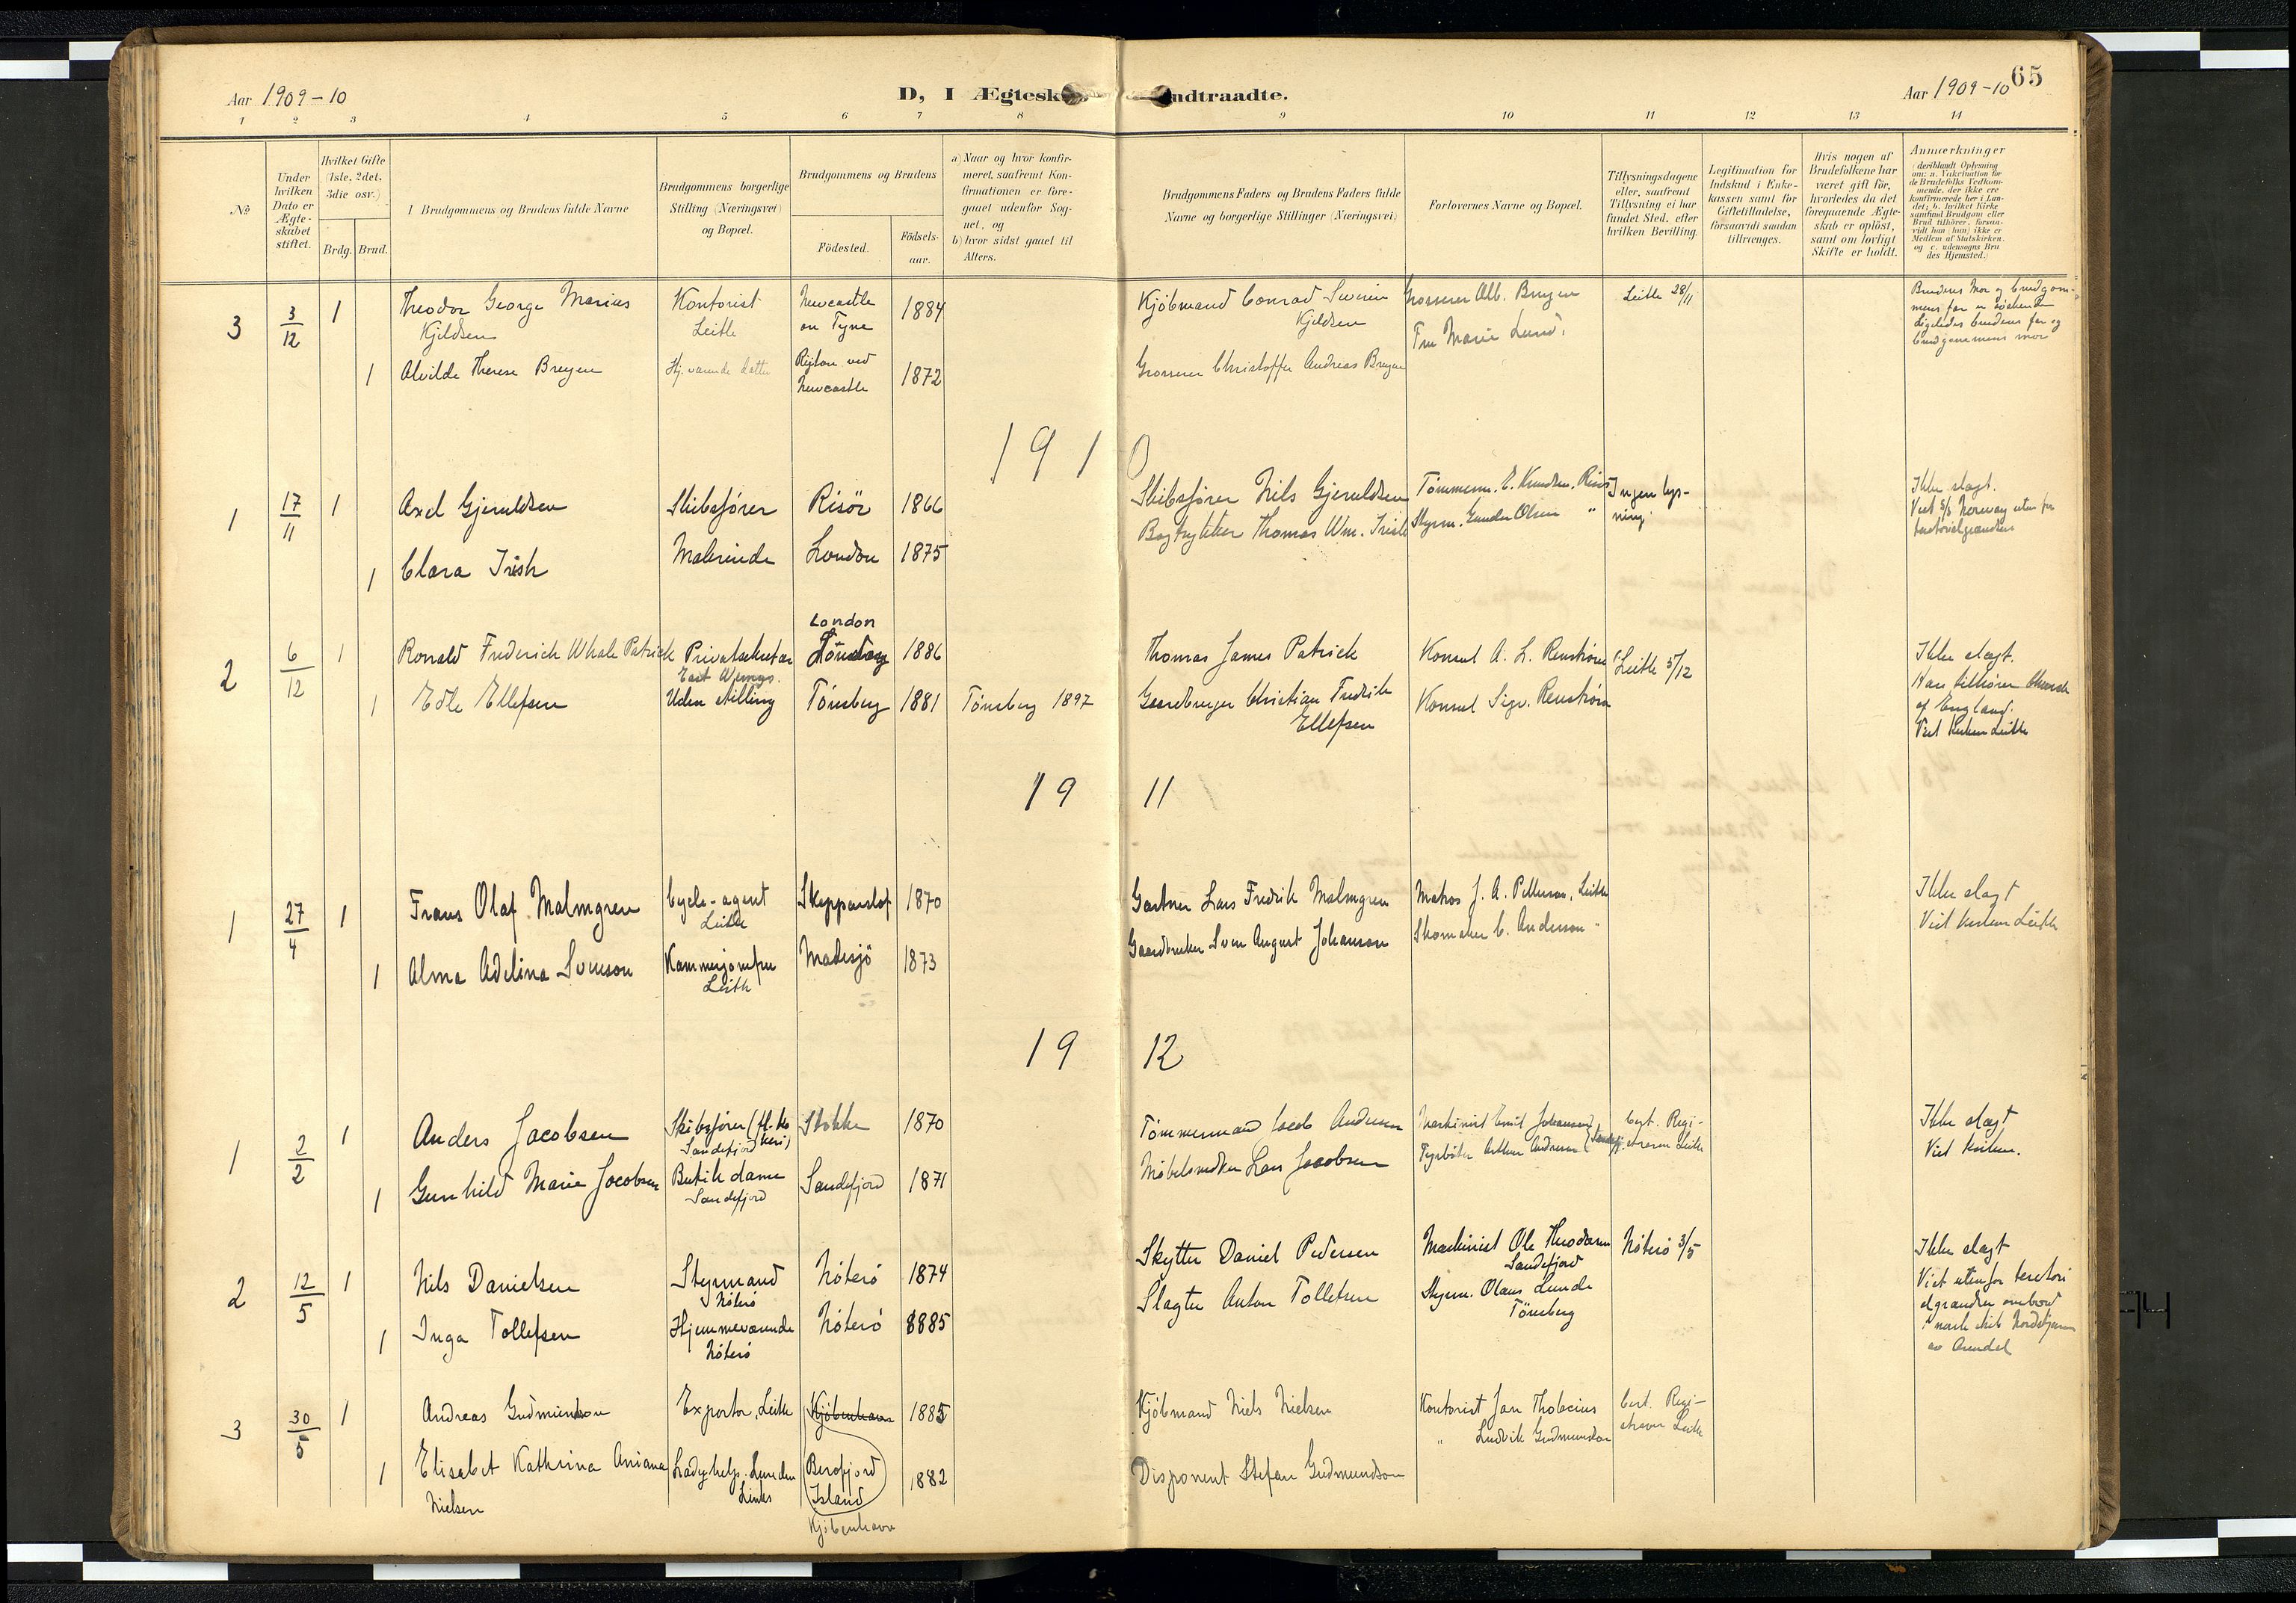 65
Aar 1909-10
D, I Ægtesk
ndtraadte.
Aar 1909-10
1 2 3 4 5 6 7 8 9 10 11 12 13 14
№
Under hvilken Dato er Ægteskabet stiftet.
Hvilket Gifte (1ste, 2det, 3die osv.)
Brdg. Brud.
Brudgommens og Brudens fulde Navne
Brudgommens borgerlige Stilling (Næringsvei) og Bopæl.
Brudgommens og Brudens
Födested.
Födsels-aar.
a) Naar og hvor konfir-
meret, saafremt Kon-
firmationen er fore-
gaaet udenfor Sog-
net, og
b) hvor sidst gaaet til
Alters.
Brudgommens Faders og Brudens Faders fulde
Navne og borgerlige Stillinger (Næringsvei)
Forlovernes Navne og Bopæl.
Tillysningsdagene
eller, saafremt
Tillysning ei har
fundet Sted, efter
hvilken Bevilling.
Legitimation for
Indskud i Enke-
kassen samt for
Giftetilladelse,
forsaavidt saadan
tiltrænges.
Hvis nogen af
Brudefolkene har
været gift för,
hvorledes da det
foregaaende Ægte-
skab er oplöst,
samt om lovligt
Skifte er holdt.
Anmærkninger
(deriblandt Oplysning
om: a. Vakcination for
de Brudefolks Vedkom-
mende, der ikke ere
konfirmerede her i Lan-
det; b. hvilket Kirke
samfund Brudgom eller
Brud tilhörer, forsaa-
vidt han (hun) ikke er
Medlem af Statskirken,
og c. udensogns Bru
des Hjemsted.)
3 3/12 1 Theodor George Marius Kjeldsen Kontorist Leith Newcastle on Tyne 1884 Kjöbmand Conrad Kjeldsen Grosserer Alb. Bruyen Leith 28/11
Fru Marie Lund.
Brudens Mor og brudgom-
mens far er söskende
Ligeledes brudens far og
brudgommens mor
1 Alvilde Therese Bruyen Hj. værende datter ved Newcastle 1872 Grosserer Christoffer Andreas Bruyen
1910
1 17/11 1 Axel Gjeruldsen Skibsförer Risör 1866 Skibsförer Nils Gjeruldsen Tömmerm. E. Knudsen, Risör Ingen lys-
ning.
Ikke slægt.
Viet S/S Norway uten for
territorialgrændsen
1 Clara Irish Malerinde London 1875 Bogtrykker Thomas Wm. Irish Styrm. Gunder Olsen "
2 6/12 1 Ronald Frederick Whale Patrick Privatsekretær East Wemyss. London 1886 Thomas James Patrick Konsul A. L. Renström Leith 5/12
Ikke slægt.
Han tilhörer Church
of England.
Viet Kirken Leith
1 Edle Ellefsen Uden stilling Tönsberg 1881 Tönsberg 1897 Christian Fredrik Ellefsen Konsul Sigv. Renström
1911
1 27/4 1 Frans Olaf Malmgren Cycle-agent Leith Skepperslöf 1870 Gartner Lars Fredrik Malmgren Matros J. A. Petterson, Leith
Ikke slægt
Viet kirken Leith
1 Alma Adelina Svenson Kammerjomfru Leith Madesjö 1873 Gaardbruker Sven August Johanson Skomaker C. Anderson "
1912
1 2/2 1 Anders Jacobsen Skibsförer Sandefjord Stokke 1870 Tömmermand Jacob Andersen Maskinist Emil Johannesen Cert. Regi-
streren Leith
Ikke slægt
Viet kirken.
1 Gunhild Marie Jacobsen Butikdame Sandefjord Sandefjord 1871 Möbelsnedker Lars Jacobsen Fyrböter Arthur Andresen
2 12/5 1 Nils Danielsen Styrmand Nöterö Nöterö 1874 Skytter Daniel Pedersen Maskinist Ole Theodorsen Sandefjord Nöterö 3/5
Ikke slægt
Viet utenfor territori
algrændsen ombord
i norsk skib Nordstjernen
av Arendal
1 Inga Tollefsen Hjemmeværende Nöterö Nöterö 1885 Slagter Anton Tollefsen Styrm. Olaus Lunde Tönsberg
3 30/5 1 Andreas Gudmundson Exportör, Leith Kjöbenhavn 1885 Kjöbmand Niels Nielsen Kontorist Jan Cert. Regi-
streren Leith
" Ludvik Gudmundson
1 Elisabet Kathrina Aniana Nielsen Ladyhelp. Lunden Links Berofjord Island 1882 Disponent Stefan Gudmundson
Kjöbenhavn